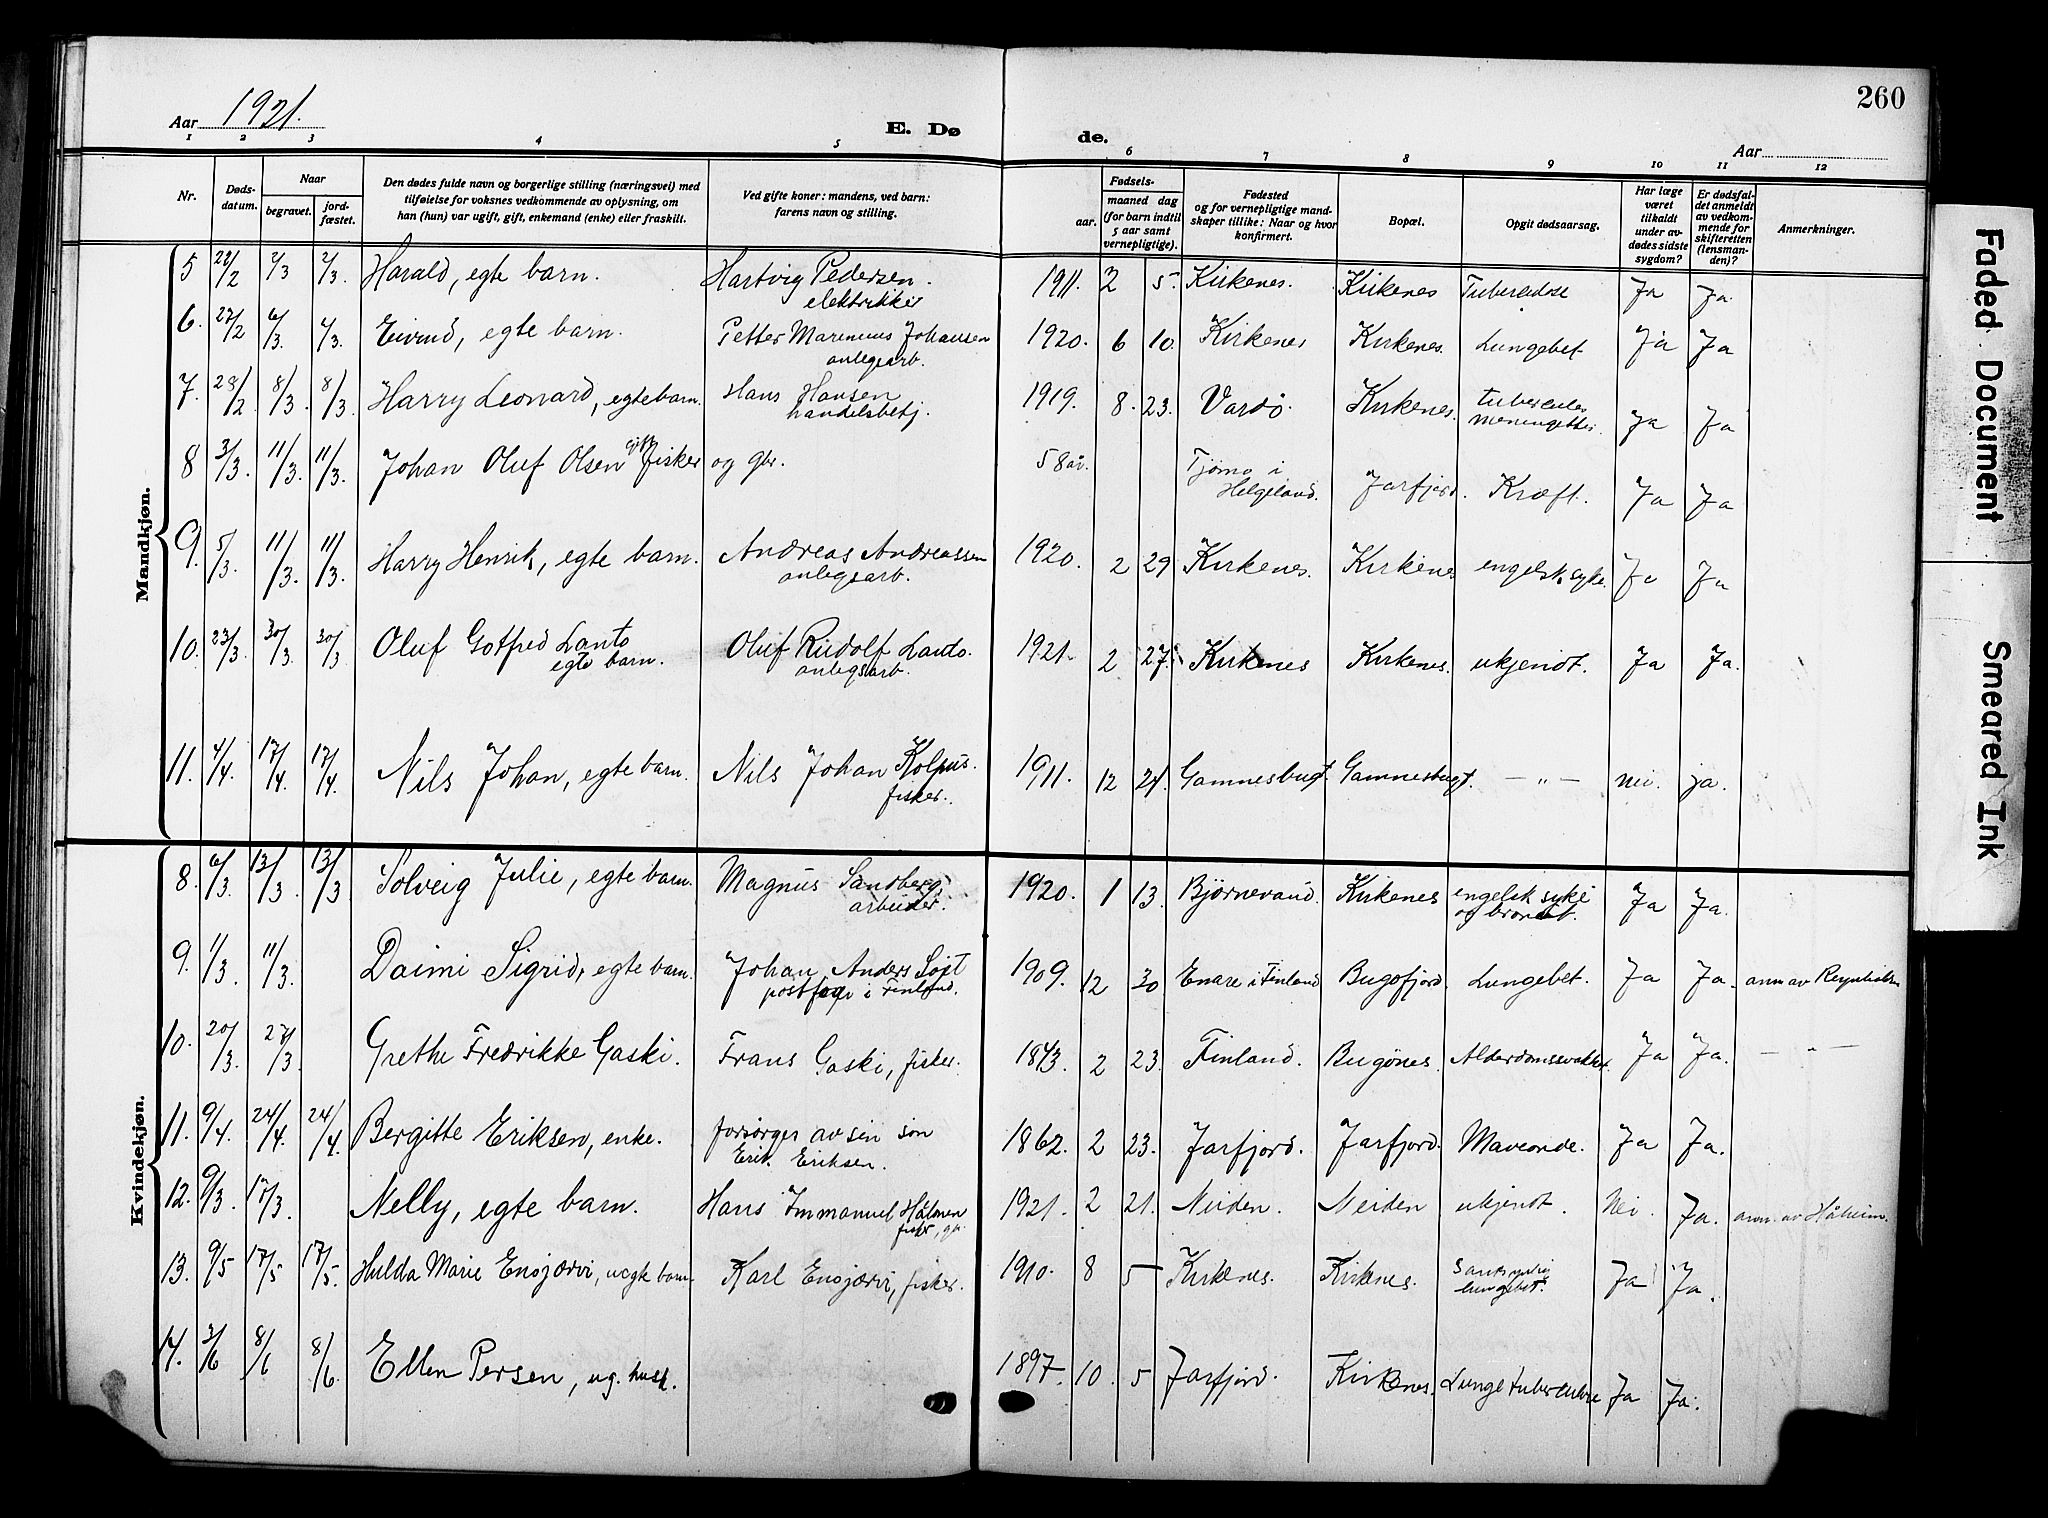 260
Aar 1921.
E. Døde.
Aar
1 2 3 4 5 6 7 8 9 10 11 12
Nr.
Døds-
datum.
Naar
begravet.
jord-
fæstet.
Den dødes fulde navn og borgerlige stilling (næringsvei) med
tilføielse for voksnes vedkommende av oplysning, om
han (hun) var ugift, gift, enkemand (enke) eller fraskilt.
Ved gifte koner: mandens, ved barn:
farens navn og stilling.
Fødsels-
aar.
maaned dag
(for barn indtil
5 aar samt
vernepligtige).
Fødested
og for vernepligtige mand-
skaper tillike: Naar og hvor
konfirmert.
Bopæl.
Opgit dødsaarsag.
Har læge
været
tilkaldt
under av-
dødes sidste
sygdom?
Er dødsfal-
det anmeldt
av vedkom-
mende for
skifteretten
(lensman-
den)?
Anmerkninger.
Mandkjøn.
5 22/2 2/3 2/3. Harald, egte barn. Hartvig Pedersen. elektrikker 1911. 2 5. Kirkenes. Kirkenes Tuberculose Ja Ja.
6. 27/2 6/3. Eivind, egte barn. Petter Marinius Johansen anlegsarb. 1920. 6 10. Kirkenes Kirkenes. Lungebet Ja Ja
7. 28/2. 8/3. 8/3. Harry Leonard, egte barn. Hans Hansen handelsbetj. 1919. 8. 23. Vardö. Kirkenes. tubercules Ja Ja
8 3/3. 11/3. 11/3. Johan Oluf Olsen gift fisker og gbr. 58 år. Tjömö i Helgeland. Jarfjord. Kræft. Ja Ja
9. 5/3. 11/3. 11/3. Harry Henrik, egte barn. Andreas Andreassen anlegsarb. 1920. 2 29 Kirkenes. Kirkenes engelsk syke. Ja Ja
10. 23/3. 30/3. 30/3 Oluf Gotfred Lanto egte barn. Oluf Rudolf Lanto. anlegsarb. 1921. 2 27. Kirkenes Kirkenes. ukjendt. Ja Ja.
11. 4/4. 17/4. 17/4. Nils Johan, egte barn. Nils Johan Kolpus. fisker. 1911. 12 21. Gamnesbugt. Gamnesbugt. — „ — nei. ja.
Kvindekjøn.
8. 6/3. 13/3 13/3 Solveig Julie, egte barn. Magnus Sandberg, arbeider. 1920. 1 13. Björnevand. Kirkenes engelsk syke og bronkit. Ja Ja.
9. 1/3. 11/3. Daimi Sigrid, egte barn. Johan Anders i Finland. 1909. 12 30 Enare i Finland Bugöfjord. Lungebet. Ja Ja. anm av
10. 20/3. 27/3. Grethe Fredrikke Gaski. Frans Gaski, fisker. 1843. 2 23. Finland. Bugönes. Alderdomssvakhet. Ja Ja. — „ —
11. 9/4. 24/4. 24/4. Bergitte Eriksen, enke. forsörges av sin sön Erik Eriksen. 1862. 2 23. Jarfjord. Jarfjord. Maveonde. Ja Ja.
12. 9/3. 17/3. Nelly, egte barn. Hans Immanuel fisker, gbr. 1921. 2 21. Neiden. Neiden ukjendt. Nei. Ja. anm. av
13. 9/5 17/5 17/5. Hulda Marie Ensjærvi, uegte barn. Karl Ensjærvi, fisker. 1910. 8 5 Kirkenes. Kirkenes. lungebet. Ja Ja.
14. 3/6 8/6 8/6. Ellen Persen, ug. hush. 1897. 10. 5 Jarfjord. Kirkenes. Lungetuberculose Ja Ja.
Faded Document
Smeared Ink